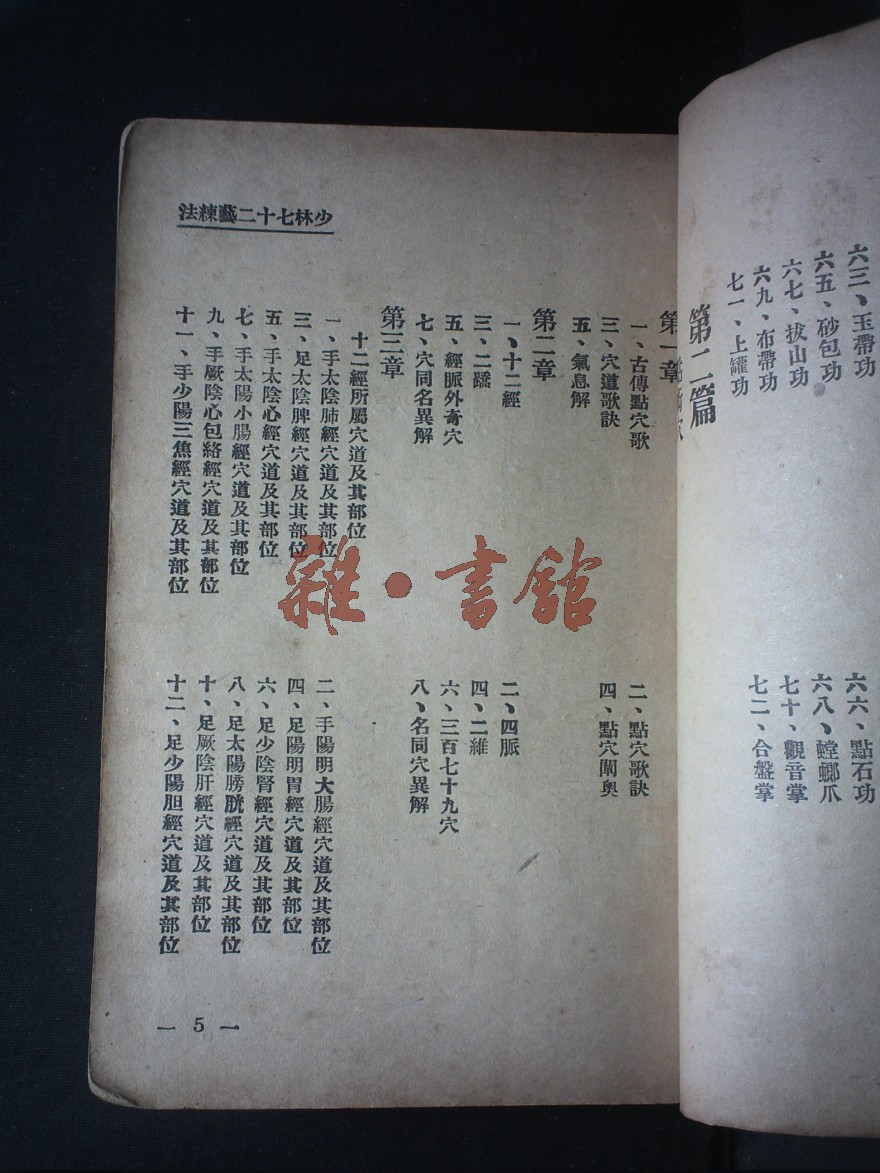 六三、玉帶功
六六、點石功
六五、砂包功
六八、螳螂爪
六七、拔山功
七十、觀音掌
六九、布帶功
七二、合盤掌
七一、上罐功
第二篇
少林七十二藝練法
第一章
一、古傳點穴歌
二、點穴歌訣
三、穴道歌訣
四、點穴闡奧
五、氣息解
第二章
一、十二經
二、四脈
三、二蹻
四、二維
五、經脈外奇穴
六、三百七十九穴
七、穴同名異解
八、名同穴異解
第三章
十二經所屬穴道及其部位
一、手太陰肺經穴道及其部位
二、手陽明大腸經穴道及其部位
三、足太陰脾經穴道及其部位
四、足陽明胃經穴道及其部位
五、手太陰心經穴道及其部位
六、足少陰腎經穴道及其部位
七、手太陽小腸經穴道及其部位
八、足太陽膀胱經穴道及其部位
九、手厥陰心包絡經穴道及其部位
十、足厥陰肝經穴道及其部位
十一、手少陽三焦經穴道及其部位
十二、足少陽胆經穴道及其部位
— 5 —
雜·書館